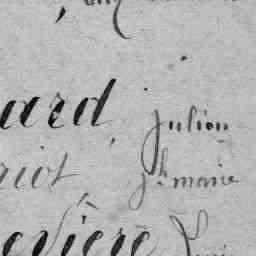 ard, Julien
riot, Jh marie
evière